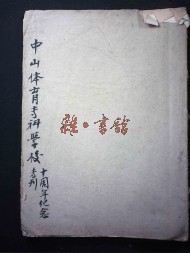 中山体育专科学校
十周年纪念
专刊
雅·书馆